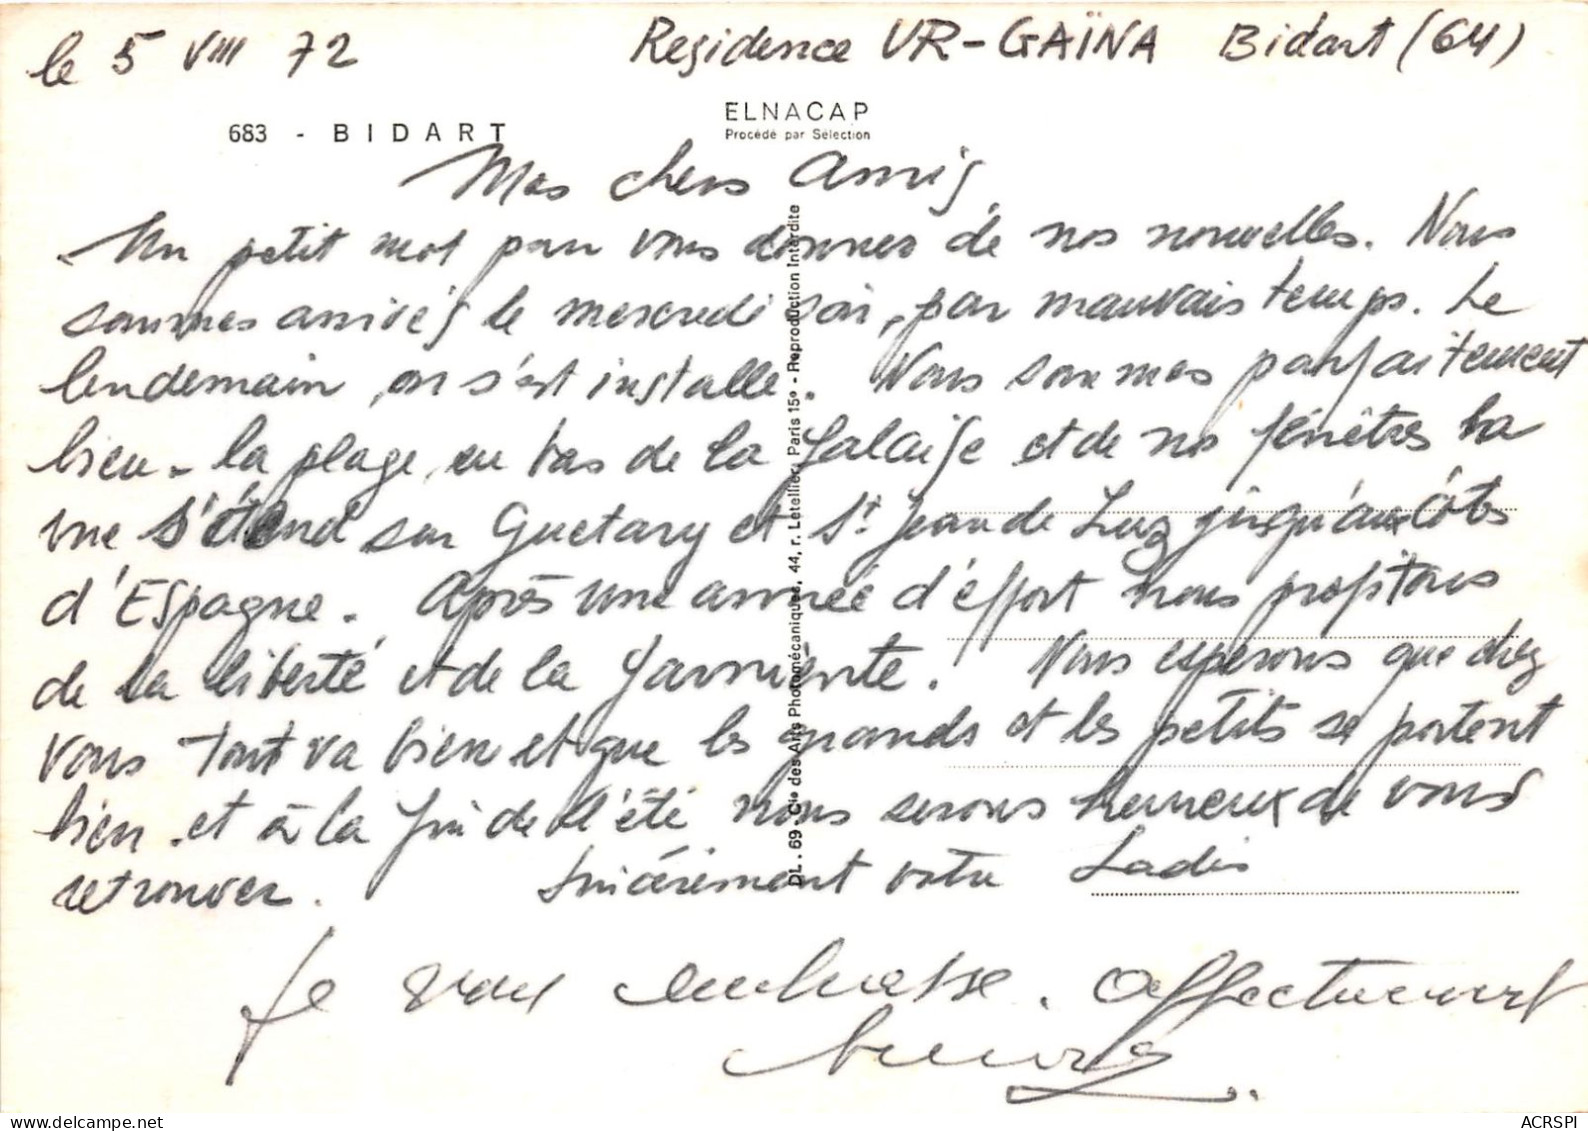 le 5 VIII 72 Residence UR-GAÏNA Bidart (64)
683 - BIDART
ELNACAP
Procédé par Sélection
Mes chers Amis
Un petit mot pour vous donner de nos nouvelles. Nous
sommes arrivés le mercredi soir, par mauvais temps. Le
lendemain, on s'est installé. Nous sommes parfaitement
bien - la plage, en bas de la falaise et de nos fenêtres la
vue s'étend sur Guetary et St Jean de Luz jusqu'aux côtes
d'Espagne. Après une année d'effort nous profitons
de la liberté et de la farniente. Nous esperons que chez
vous tout va bien et que les grands et les petits se portent
bien et à la fin de l'été nous serons heureux de vous
retrouver. Sincérement votre Ladis
Je vous embrasse. Affectueusement
DL. 69 - Cie des Arts Photomécaniques, 44, r. Letellier, Paris 15e - Reproduction Interdite
delcampe.net
ACRSPI